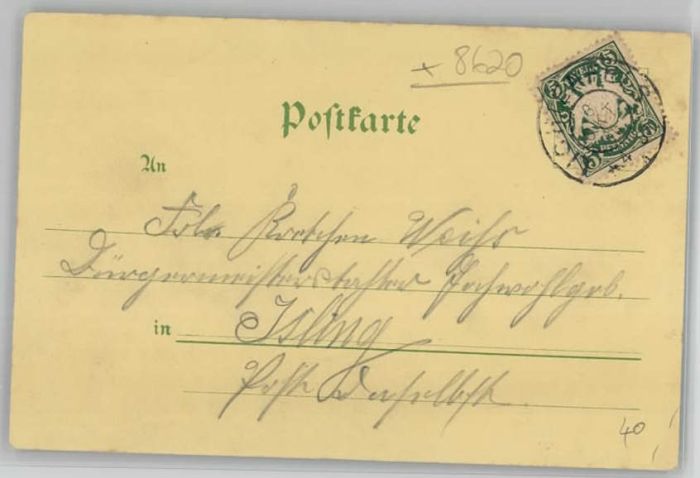 x 8620
Postkarte
An
Frln Kretschen Weiss
Bürgermeisterstochter Hochwohlgeb.
in Isling
Post daselbst.
40